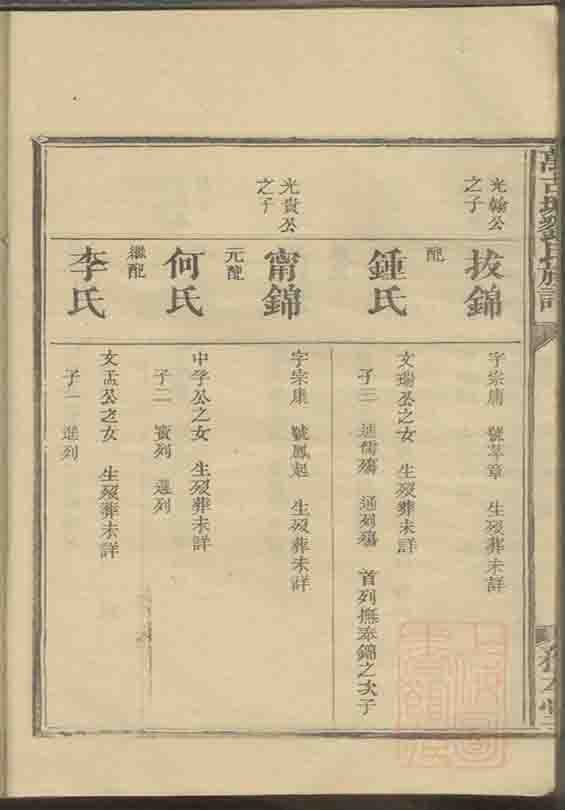 光翰公
之子
拔錦
字宗庸 號萃章 生歿葬未詳
配
鍾氏
文瑞公之女 生歿葬未詳
子三 儒殤 通列殤 首列撫泰錦之次子
光貴公
之子
甯錦
字宗康 號鳳起 生歿葬未詳
元配
何氏
中孚公之女 生歿葬未詳
子二 賓列 選列
繼配
李氏
文孟公之女 生歿葬未詳
子一 進列